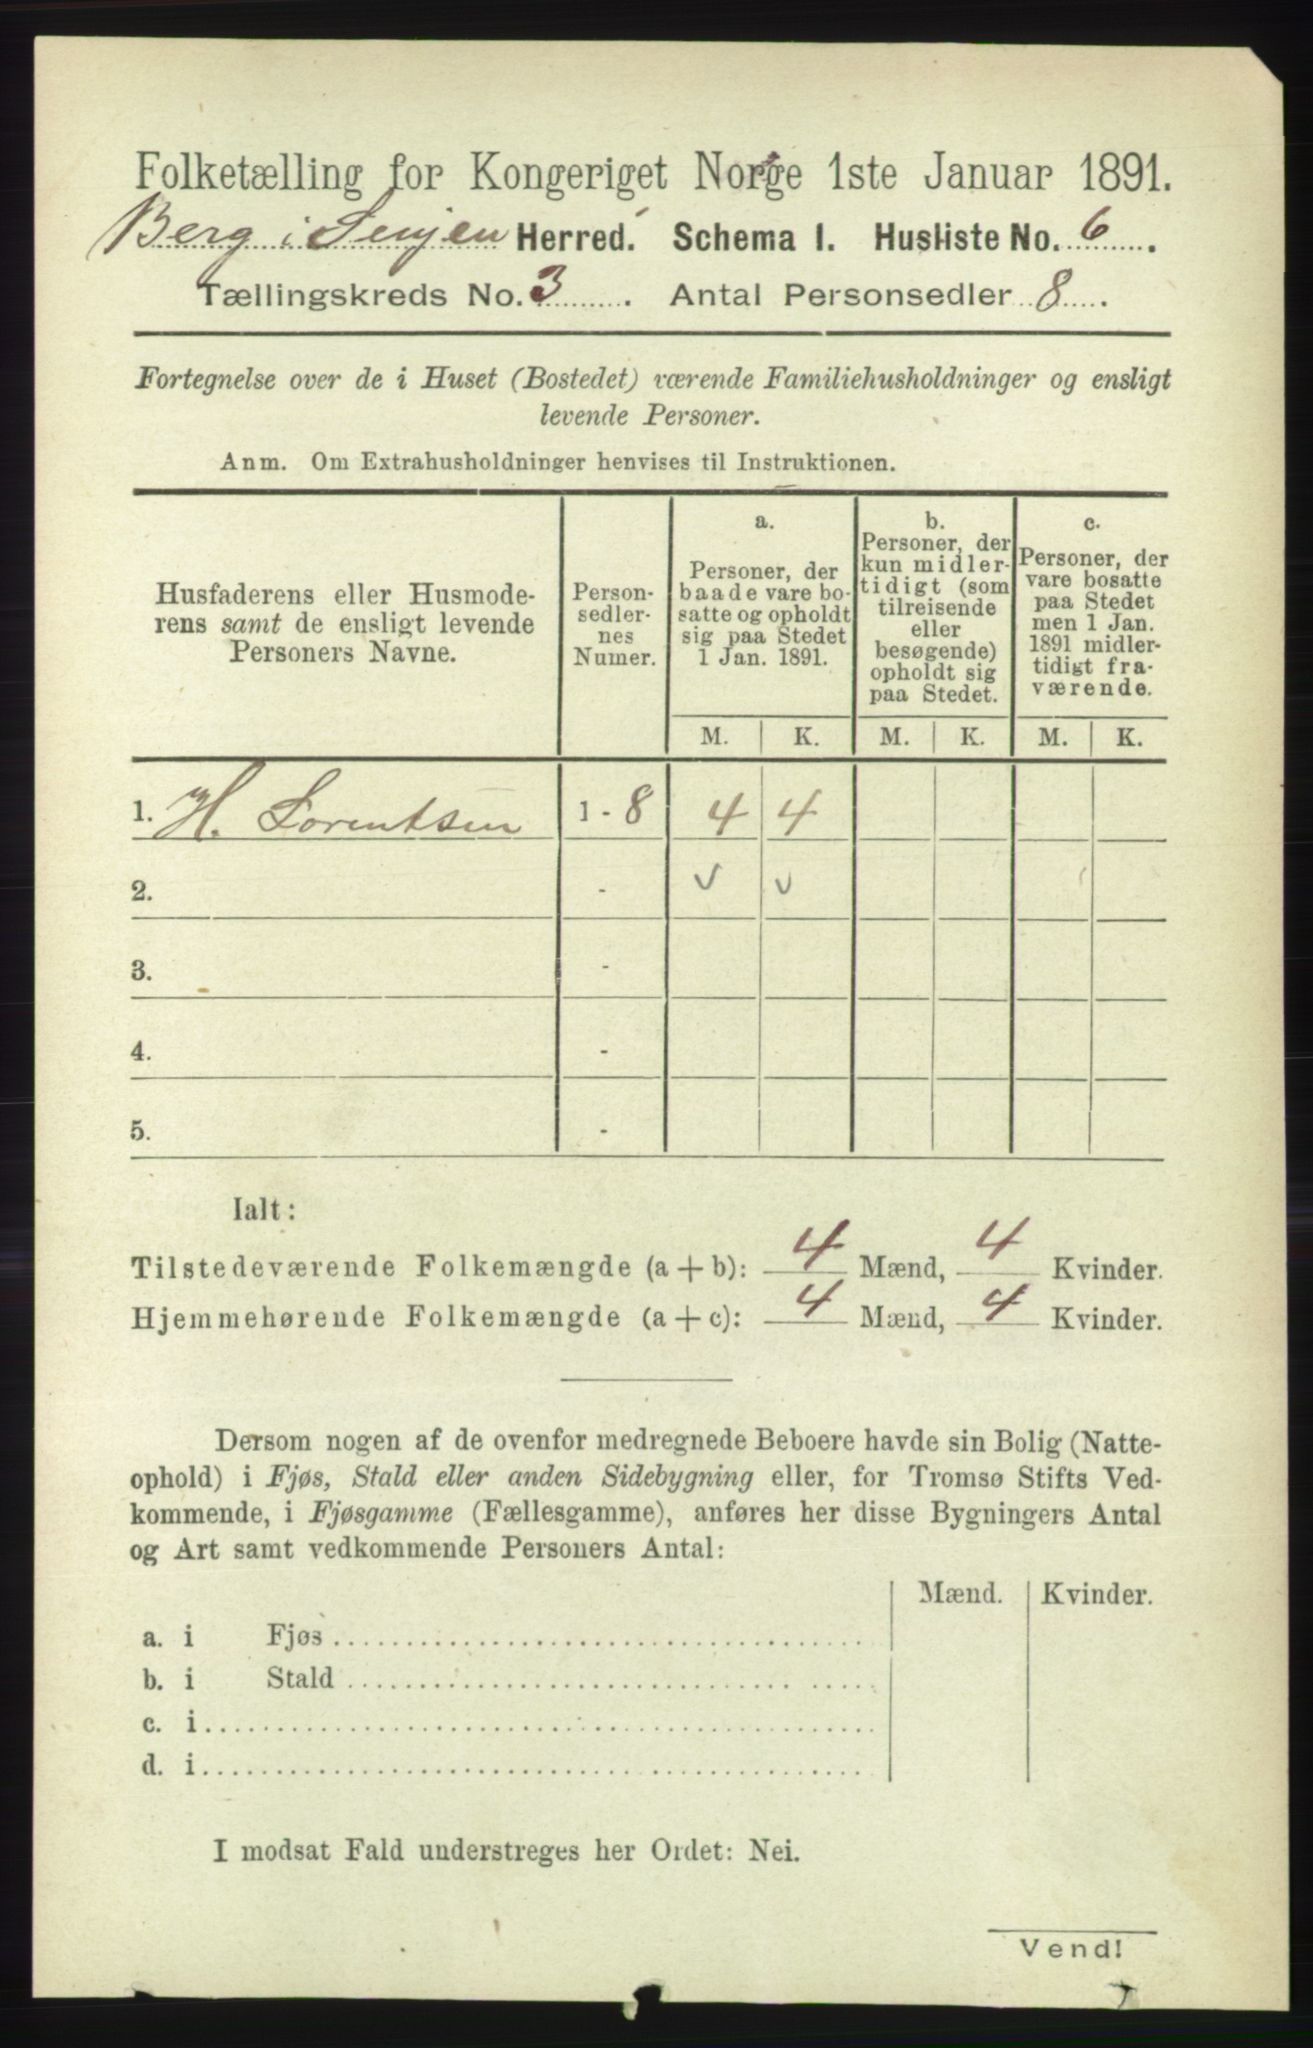 Folketælling for Kongeriget Norge 1ste Januar 1891.
Berg i Senjen Herred. Schema I. Husliste No. 6.
Tællingskreds No. 3. Antal Personsedler 8.
Fortegnelse over de i Huset (Bostedet) værende Familiehusholdninger og ensligt
levende Personer.
Anm. Om Extrahusholdninger henvises til Instruktionen.
Husfaderens eller Husmode-
rens samt de ensligt levende
Personers Navne.
Person-
sedler-
nes
Numer.
a.
Personer, der
baade vare bo-
satte og opholdt
sig paa Stedet
1 Jan. 1891.
b.
Personer, der
kun midler-
tidigt (som
tilreisende
eller
besøgende)
opholdt sig
paa Stedet.
c.
Personer, der
vare bosatte
paa Stedet
men 1 Jan.
1891 midler-
tidigt fra-
værende.
M. K. M. K. M. K.
1. H. Lorentsen 1 - 8 4 4
2. - v v
3. -
4. -
5. -
Ialt:
Tilstedeværende Folkemængde (a + b): 4 Mænd, 4 Kvinder.
Hjemmehørende Folkemængde (a + c): 4 Mænd, 4 Kvinder.
Dersom nogen af de ovenfor medregnede Beboere havde sin Bolig (Natte-
ophold) i Fjøs, Stald eller anden Sidebygning eller, for Tromsø Stifts Ved-
kommende, i Fjøsgamme (Fællesgamme), anføres her disse Bygningers Antal
og Art samt vedkommende Personers Antal:
Mænd. Kvinder.
a. i Fjøs
b. i Stald
c. i
d. i
I modsat Fald understreges her Ordet: Nei.
Vend!